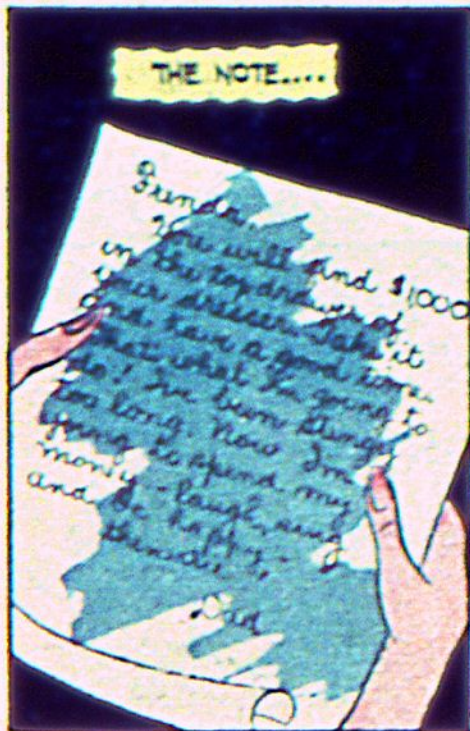 THE NOTE....
Brenda,
You will find $1000
in the top drawer of
your dresser. Take it
and have a good time.
That what I'm going to
do! I've been stingy
too long. Now I'm
going to spend my
money - laugh, sing
and be happy -
Dad